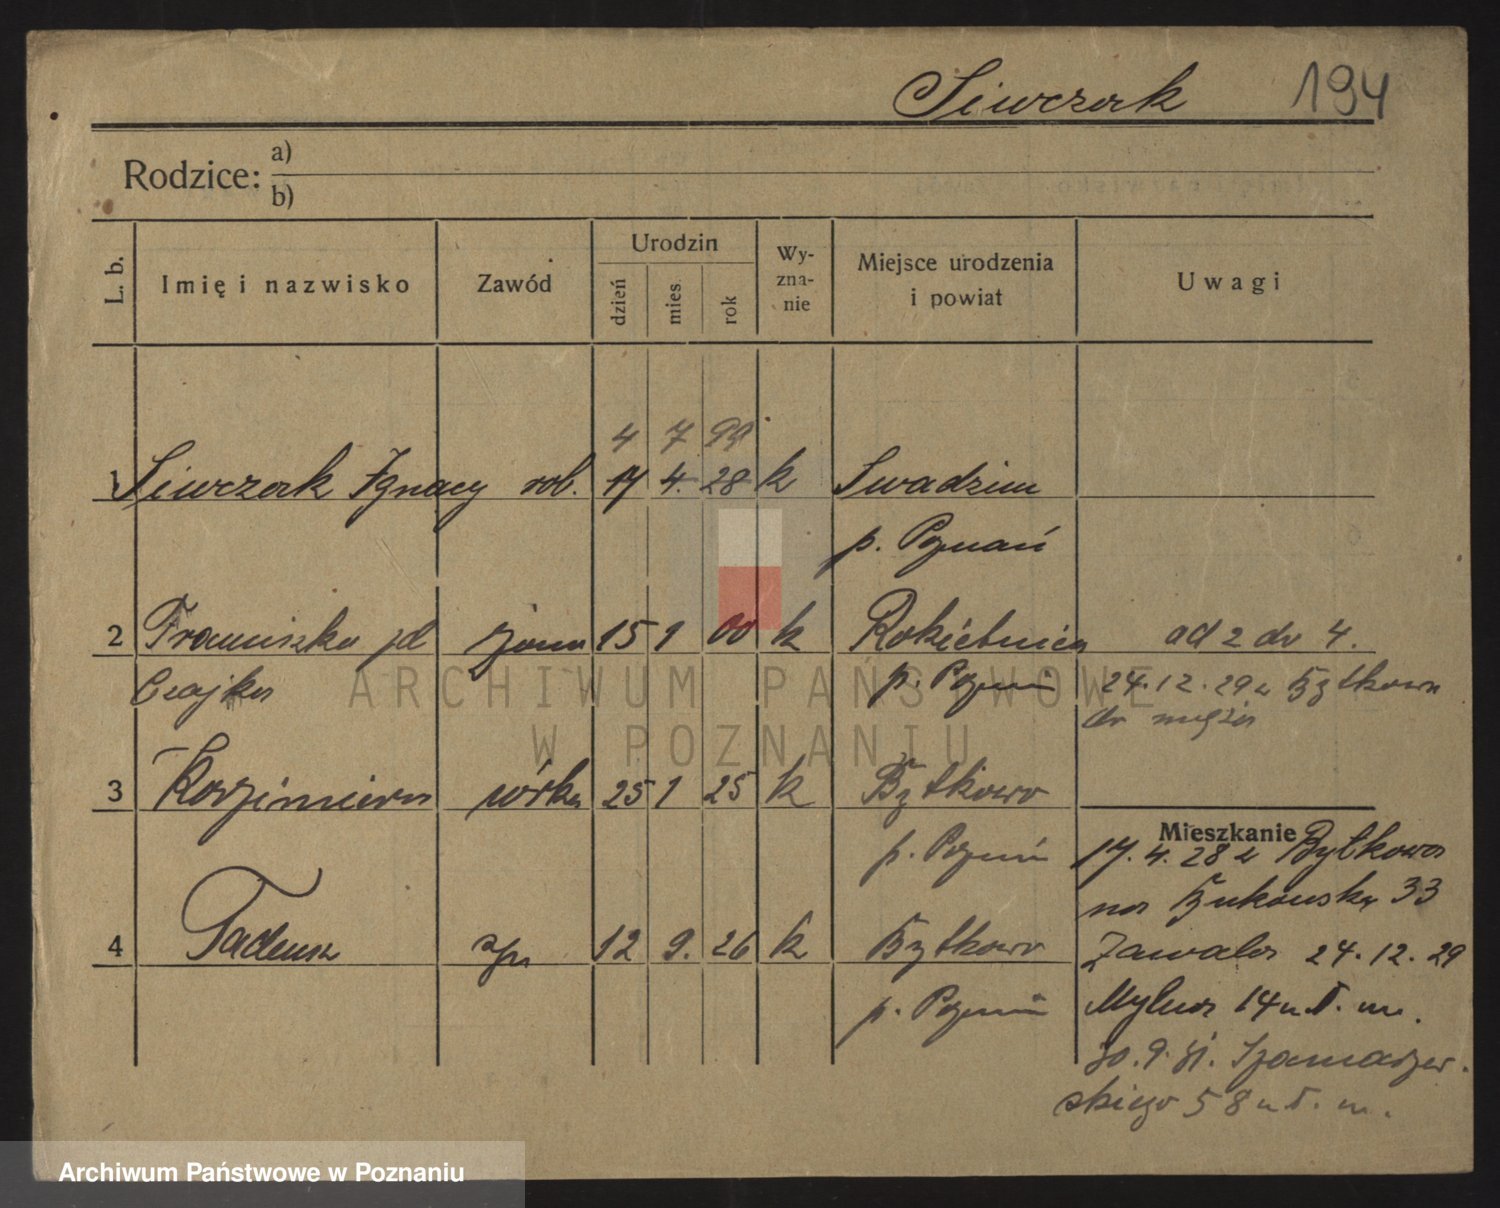 Siwczak 194
Rodzice: a)
b)
L. b. Imię i nazwisko Zawód Urodzin dzień mies. rok Wy-zna-nie Miejsce urodzenia i powiat Uwagi
4 7 99
1 Siwczak Ignacy rob. 17 4. 28 k Swadzim
p. Poznań
2 Franciszka zd żona 15 1 00 k Rokietnica ad 2 do 4.
Czajka p. Poznań 24.12.29 z Bytkowa
do męża
3 Kazimiera córka 25 1 25 k Bytkowo
Mieszkanie
p. Poznań 17.4.28 z Bytkowa
na Bukowska 33
4 Tadeusz syn 12 9. 26 k Bytkowo Zawala 24.12.29
p. Poznań Mylna 14 u t. m.
30.9.31. Szamarzew-
skiego 58 u t. m.
ARCHIWUM PAŃSTWOWE
W POZNANIU
Archiwum Państwowe w Poznaniu